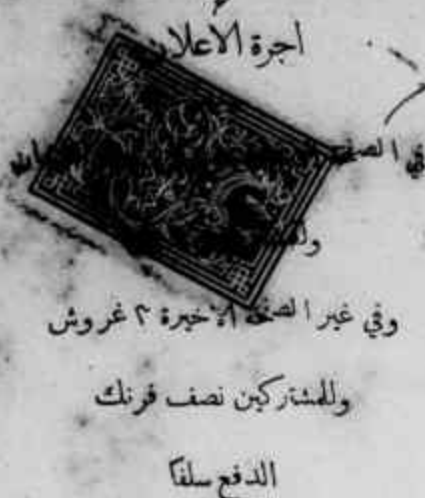 اجرة الاعلان
في الصفحة
وفي غير الصفحة الاخيرة ٢ غروش
وللمشتركين نصف فرنك
الدفع سلفًا